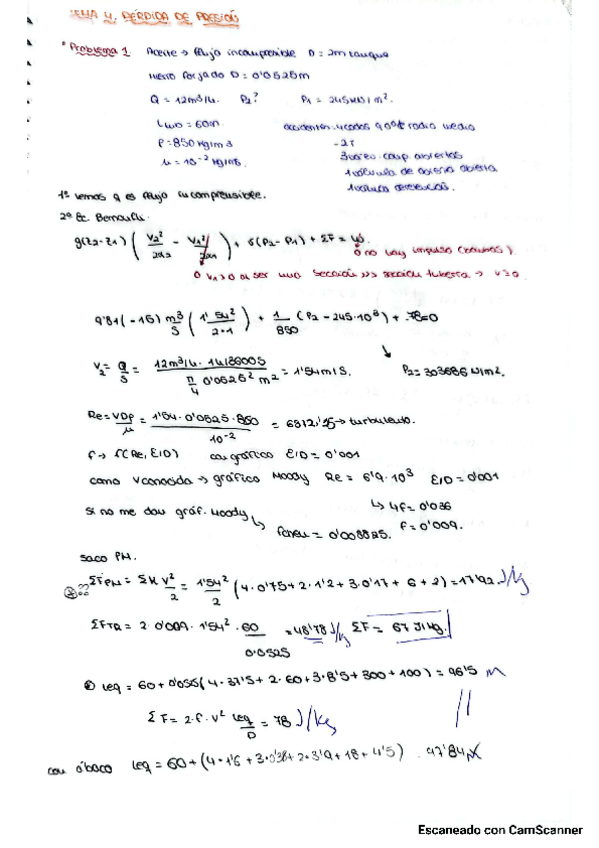 TEMA 4. PÉRDIDA DE PRESIÓN
* Problema 1 Aceite → flujo incompresible D = 2m tanque
Hierro forjado D = 0'0525m
Q = 12m³/h. P2? P1 = 245 kN/m².
L = 60m accidentes: 4 codos 90º radio medio
ρ = 850 kg/m3 - 2T
μ = 10⁻² kg/ms. 3 valv. comp abiertas
1 válvula de abierta
1 válvula
1º vemos q es flujo incompresible.
2º Ec Bernoulli.
g(z2-z1) (V2²/2α2 - V1²/2α1) + 1/ρ(P2-P1) + ΣF = W
0 no hay impulso (bombas)
0 V1→0 al ser una sección >>> sección tubería → V≈0
9'81(-15) m³/s (1'54²/2·1) + 1/850 (P2 - 245·10³) + 78=0
V2 = Q/S = 12m³/h · 1h/3600s / π/4 0'0525² m² = 1'54 m/s. P2 = 303686 N/m².
Re = VDρ/μ = 1'54·0'0525·850 / 10⁻² = 6872'25 → turbulento.
f → f(Re, E/D) con gráfico E/D = 0'001
como V conocida → gráfico Moody Re = 6'9·10³ E/D = 0'001
↳ 4f = 0'036
si no me dan gráf. Moody ↳ f = 0'008825. f = 0'009.
saco PM.
ΣFPM = ΣK V²/2 = 1'54²/2 (4·0'75 + 2·1'2 + 3·0'17 + 6 + 2) = 17'92 J/kg
ΣFTR = 2·0'009·1'54²·60/0'0525 = 48'78 J/kg ΣF = 67 J/kg.
Leq = 60 + 0'055(4·37'5 + 2·60 + 3·8'5 + 300 + 100) = 96'5 m
ΣF = 2·f·V² Leq/D = 78 J/kg
con ábaco Leq = 60 + (4·1'6 + 3·0'38 + 2·3'9 + 18 + 4'5) 97'84 m
Escaneado con CamScanner